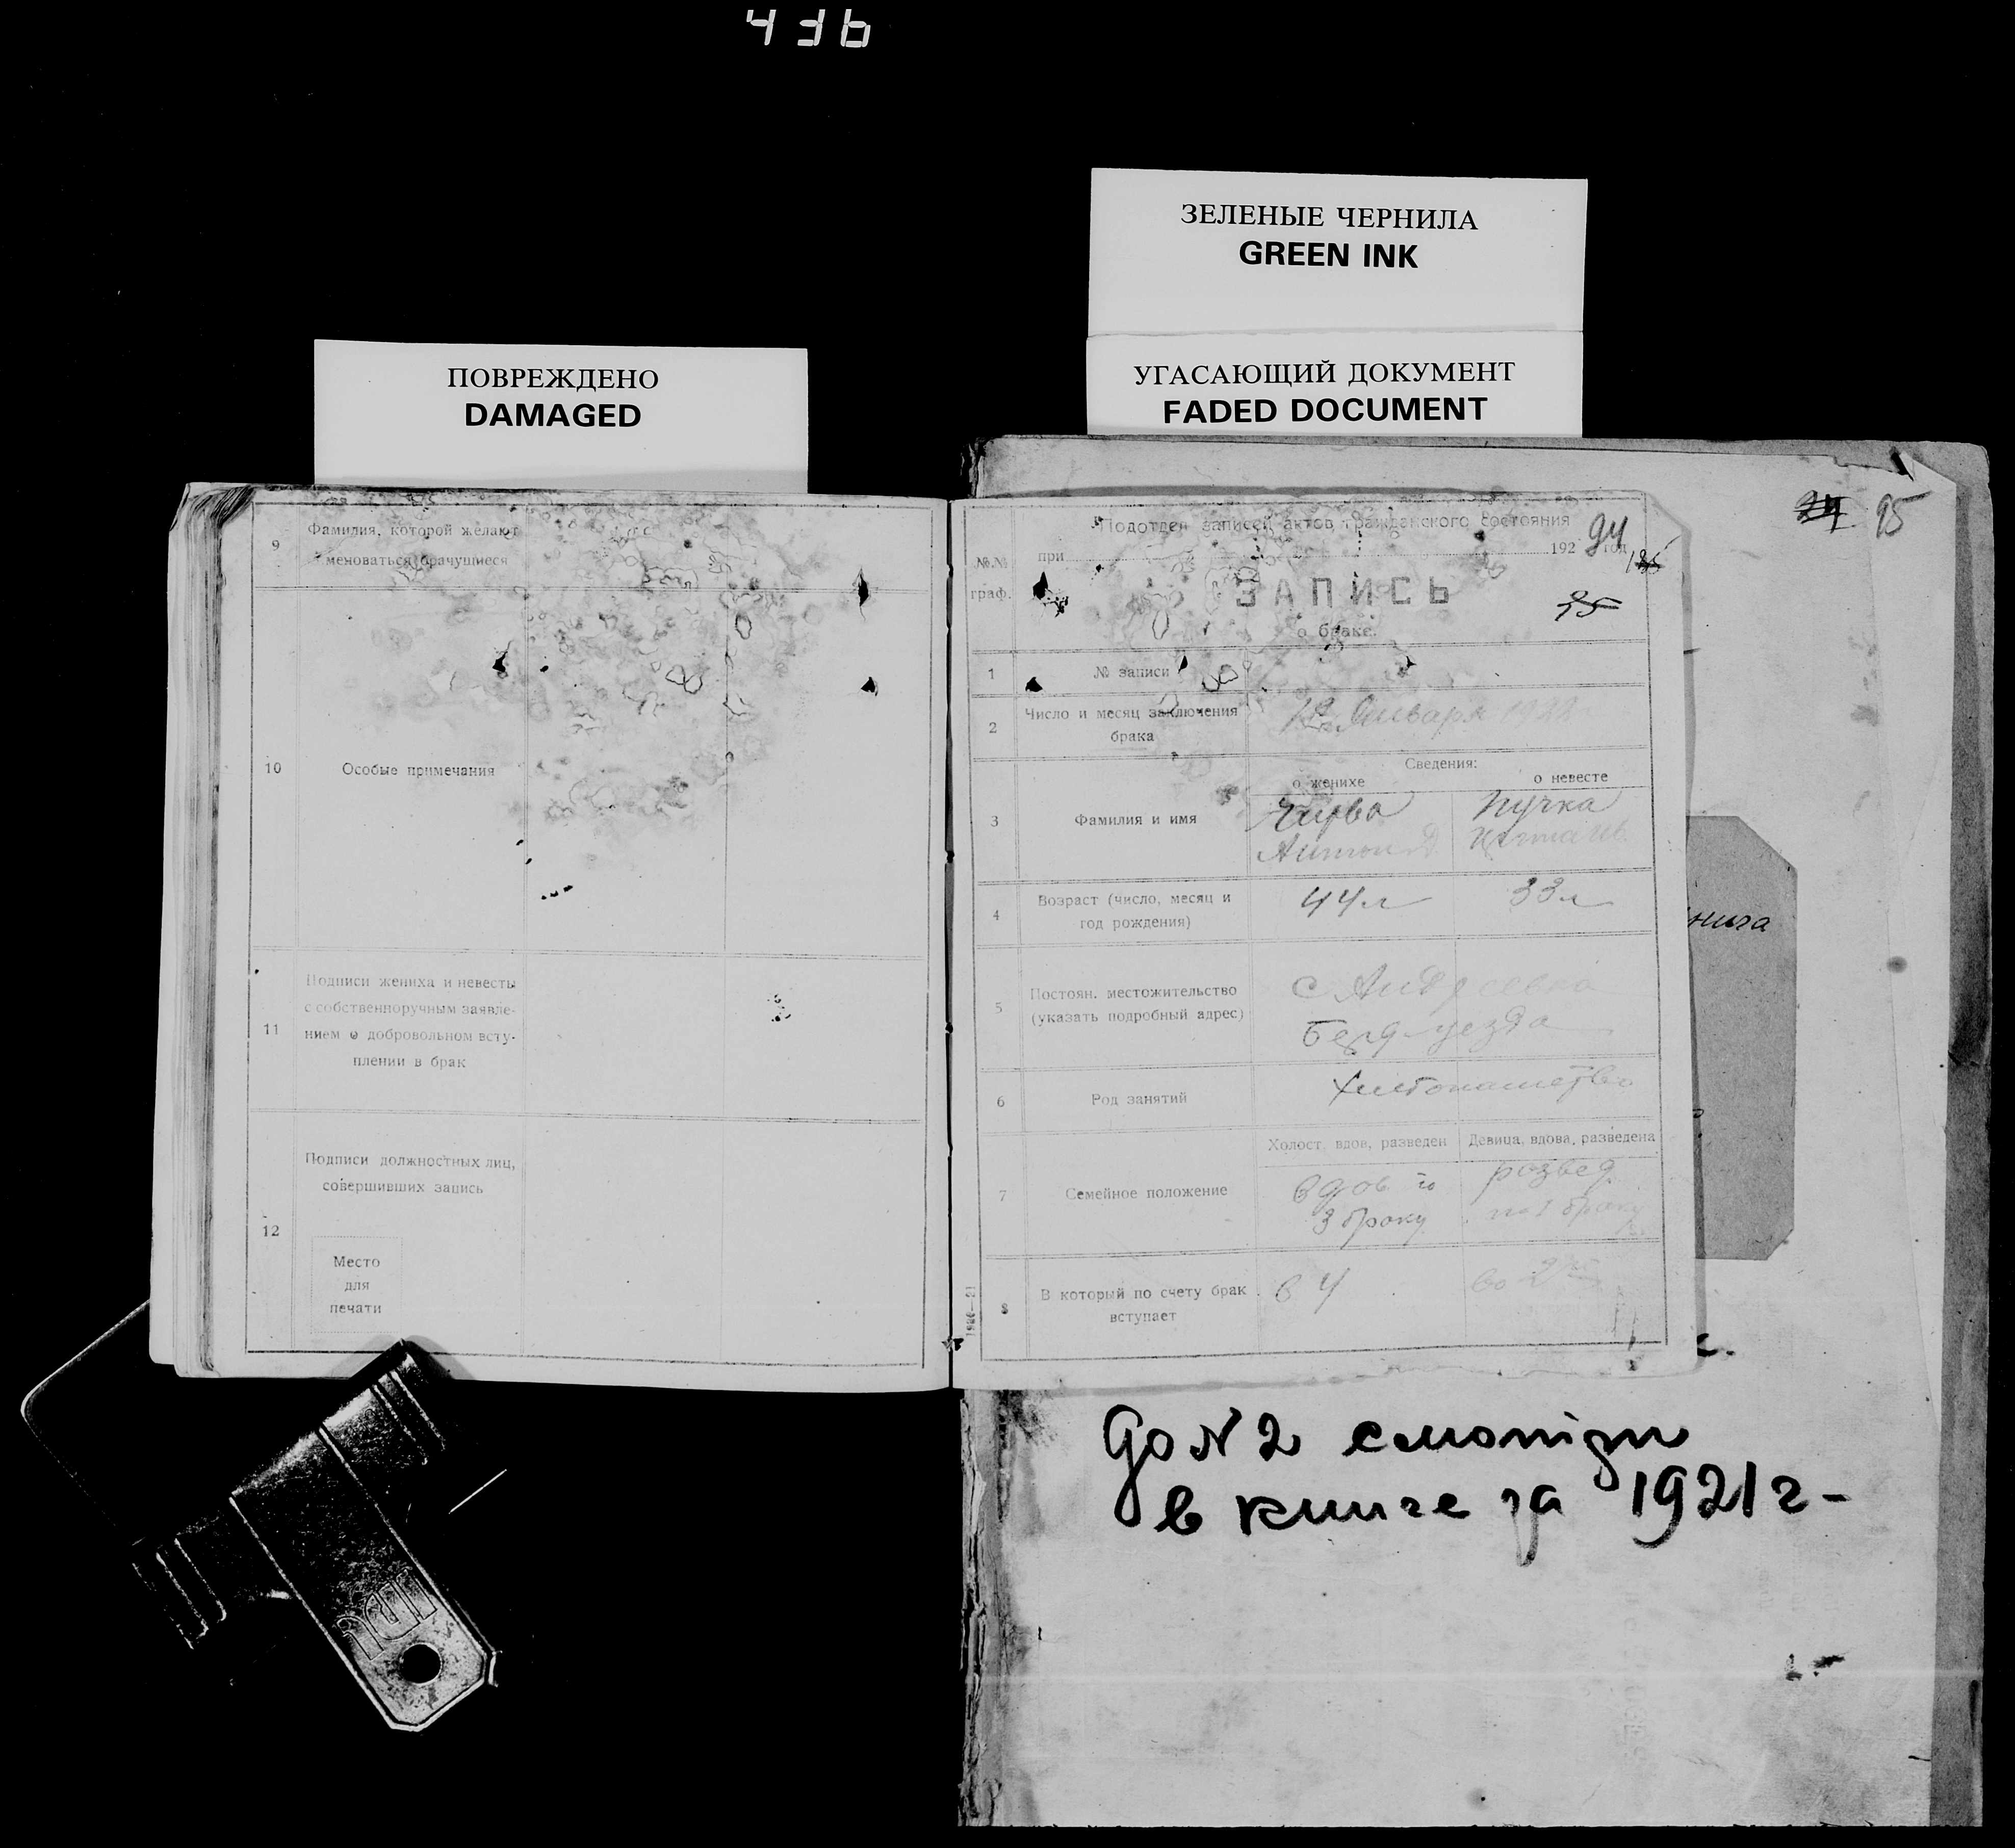 436
ЗЕЛЕНЫЕ ЧЕРНИЛА
GREEN INK
УГАСАЮЩИЙ ДОКУМЕНТ
FADED DOCUMENT
ПОВРЕЖДЕНО
DAMAGED
9
Фамилия, которой желают
меноваться брачущиеся
10
Особые примечания
11
Подписи жениха и невесты
с собственноручным заявле-
нием о добровольном всту-
плении в брак
12
Подписи должностных лиц,
совершивших запись
Место
для
печати
95
Подотдел записей актов гражданского состояния
94
при 192 год
№№
граф.
ЗАПИСЬ
о браке.
1
№ записи
2
Число и месяц заключения
брака
Января 1922
Сведения:
о женихе
о невесте
3
Фамилия и имя
Чирва
Антон
Пучка
4
Возраст (число, месяц и
год рождения)
44 л
33 л
5
Постоян. местожительство
(указать подробный адрес)
с Андреевка
Берд уезда
6
Род занятий
Хлебопашество
7
Семейное положение
Холост, вдов, разведен
Девица, вдова, разведена
вдов по
3 браку
развед
по 1 браку
8
В который по счету брак
вступает
в 4
во 2
нига
с.
До N 2 смотри
в книге за 1921 г-